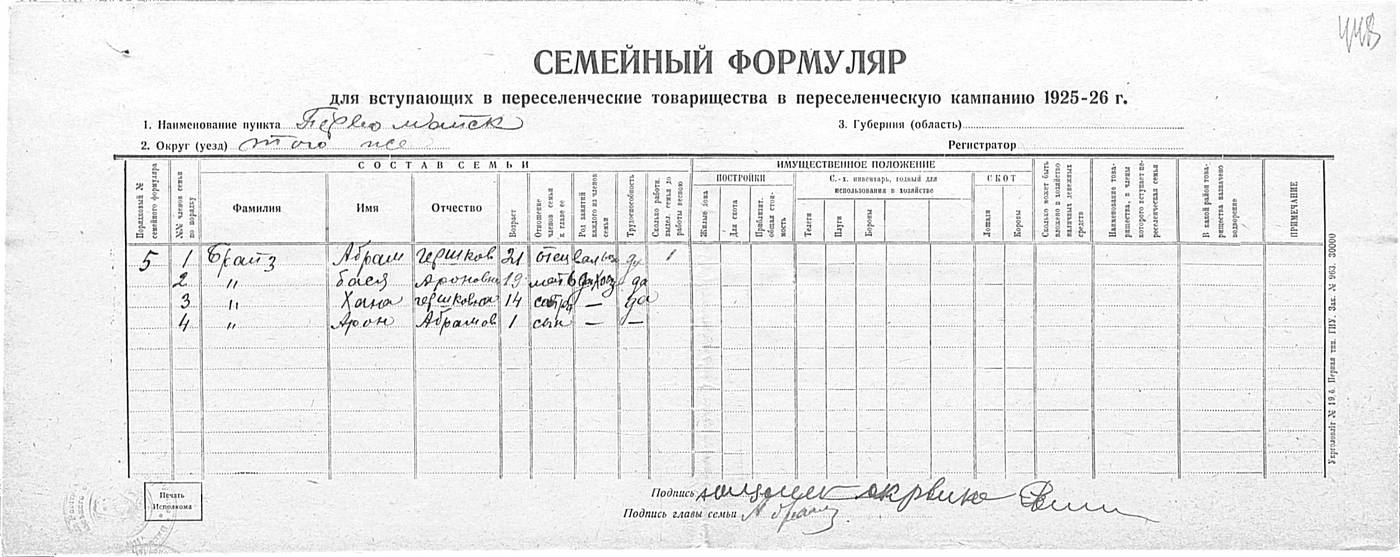 443
СЕМЕЙНЫЙ ФОРМУЛЯР
для вступающих в переселенческие товарищества в переселенческую кампанию 1925-26 г.
1. Наименование пункта Первомайск
3. Губерния (область)
2. Округ (уезд) того же
Регистратор
СОСТАВ СЕМЬИ
ИМУЩЕСТВЕННОЕ ПОЛОЖЕНИЕ
ПОСТРОЙКИ
С.-х. инвентарь, годный для использования в хозяйстве
СКОТ
Порядковый № семейного формуляра
№№ членов семьи по порядку
Фамилия
Имя
Отчество
Возраст
Отношение членов семьи к главе ее
Род занятий каждого из членов семьи
Трудоспособность
Сколько работн. выдел. семья до работы весною
Жилые дома
Для скота
Приблизит. общая стоимость
Телеги
Плуги
Бороны
Лошади
Коровы
Сколько может быть вложено в хозяйство наличных денежных средств
Наименование товарищества, в члены которого вступает переселенческая семья
В какой район товарищества назначено водворение
ПРИМЕЧАНИЕ
5 1 Брайз Абрам Гершков 21 отец да 1
2 " Бася Ароновна 19 мать да
3 " Хана Гершковна 14 сестра — да
4 " Арон Абрамов 1 сын — —
Укрголовліт № 19 d. Первая тип. ГИУ. Зак. № 963. 30000
Печать Исполкома
Подпись
Подпись главы семьи А Брайз